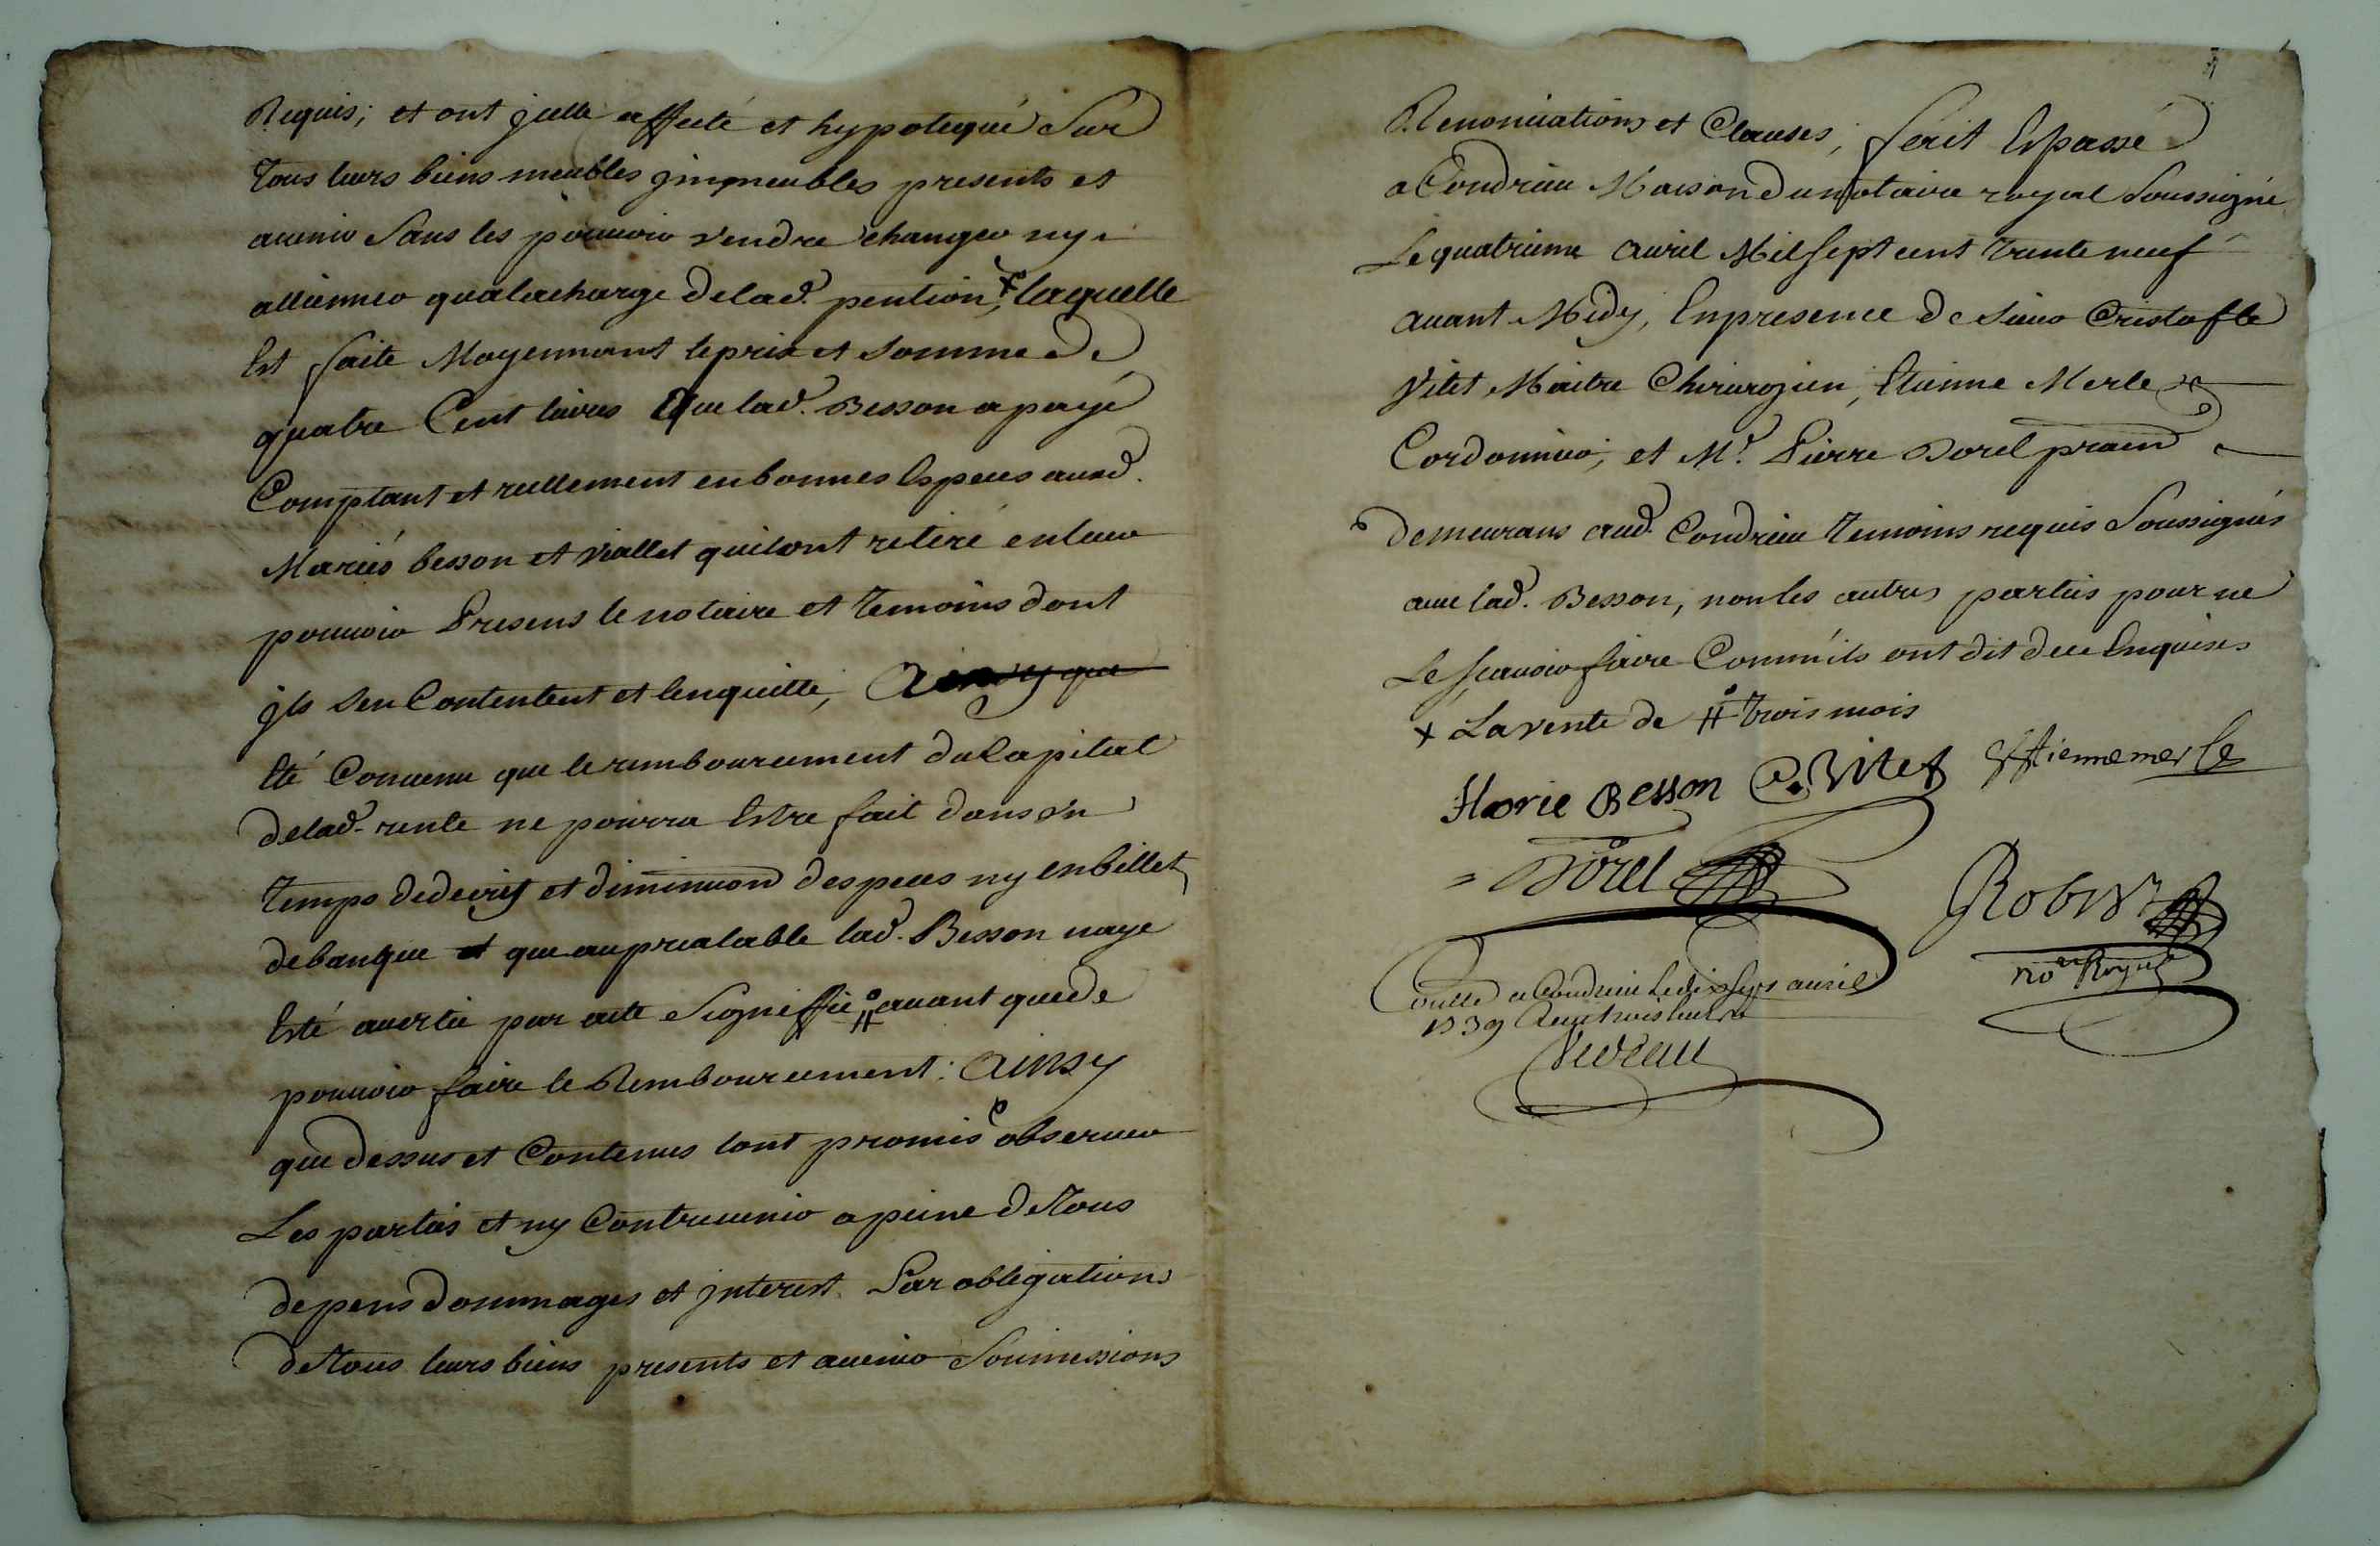 Requis; et ont jcelle affecté et hypotequé Sur
Tous leurs biens meubles jmmeubles presents et
auenir Sans les pouuoir vendre changer ny
allienner qualacharge delad. pention, + laquelle
Est faite Moyennant leprix et Somme De
quatre Cent liures Que lad. Besson a payé
Comptant et reellement enbonnes Especes ausd.
Mariés besson et viallet quilsont retiré enleur
pouuoir Presens le notaire et Temoins dont
jls sen Contentent et lenquitte, Ainsy que
Eté Conuenu que le remboursement du Capital
delad. rente ne pourra Estre fait dans vn
Temps dedecris et diminuon despeces ny enbillet
debanque et que aupreálable lad. Besson naye
Esté auertie par acte Signiffié # auant quede
pouuoir faire le Remboursement: Ainsy
que dessus et Contenus lont promis observer
Les parties et ny Contreuenir a peine deTous
depens dommages et jnterest. Par obligations
deTous leurs biens presents et auenir Soumissions
Renonciations et Clauses; ferit Et passé
a Condrieu Maison du notaire royal Soussigné
Le quatrieme auril Mil Sept cent Trente neuf
auant Midy, Enpresence de Sieur Cristofle
Vitet Maitre Chirurgien, Etienne Merle
Cordonnier, et Mr. Pierre Dorel praen
demeurans aud. Condrieu Temoins requis Soussignés
auec lad. Besson, non les autres parties pour ne
Le scauoir faire Comm'ils ont dit de ce Enquises
+ La vente de # Trois mois
Florie Besson C. Vitet Esttienne merle
Dorel
Robin
noere Royal
Conllé a Condrieu Le dix Sept auril
1739 Reçu trois liures